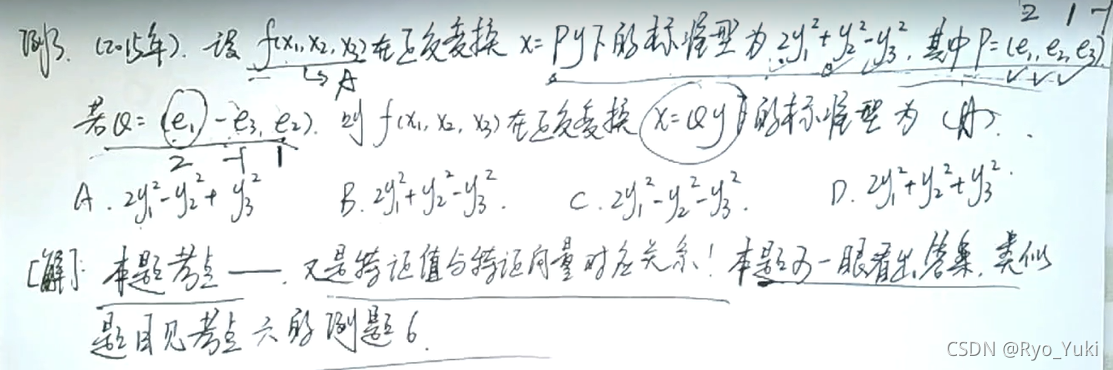 2 1 -1
例3. (2015年). 设 f(x₁,x₂,x₃)在正交变换 x=Py下的标准型为 2y₁²+y₂²-y₃², 其中P=(e₁,e₂,e₃)
↳A
若Q=(e₁,-e₃,e₂). 则 f(x₁,x₂,x₃)在正交变换 x=Qy下的标准型为 (A).
2 -1 1
A. 2y₁²-y₂²+y₃² B. 2y₁²+y₂²-y₃². C. 2y₁²-y₂²-y₃². D. 2y₁²+y₂²+y₃².
[解]: 本题考点——. 又是特征值与特征向量对应关系! 本题可一眼看出答案. 类似
题目见考点六的例题6.
CSDN @Ryo_Yuki